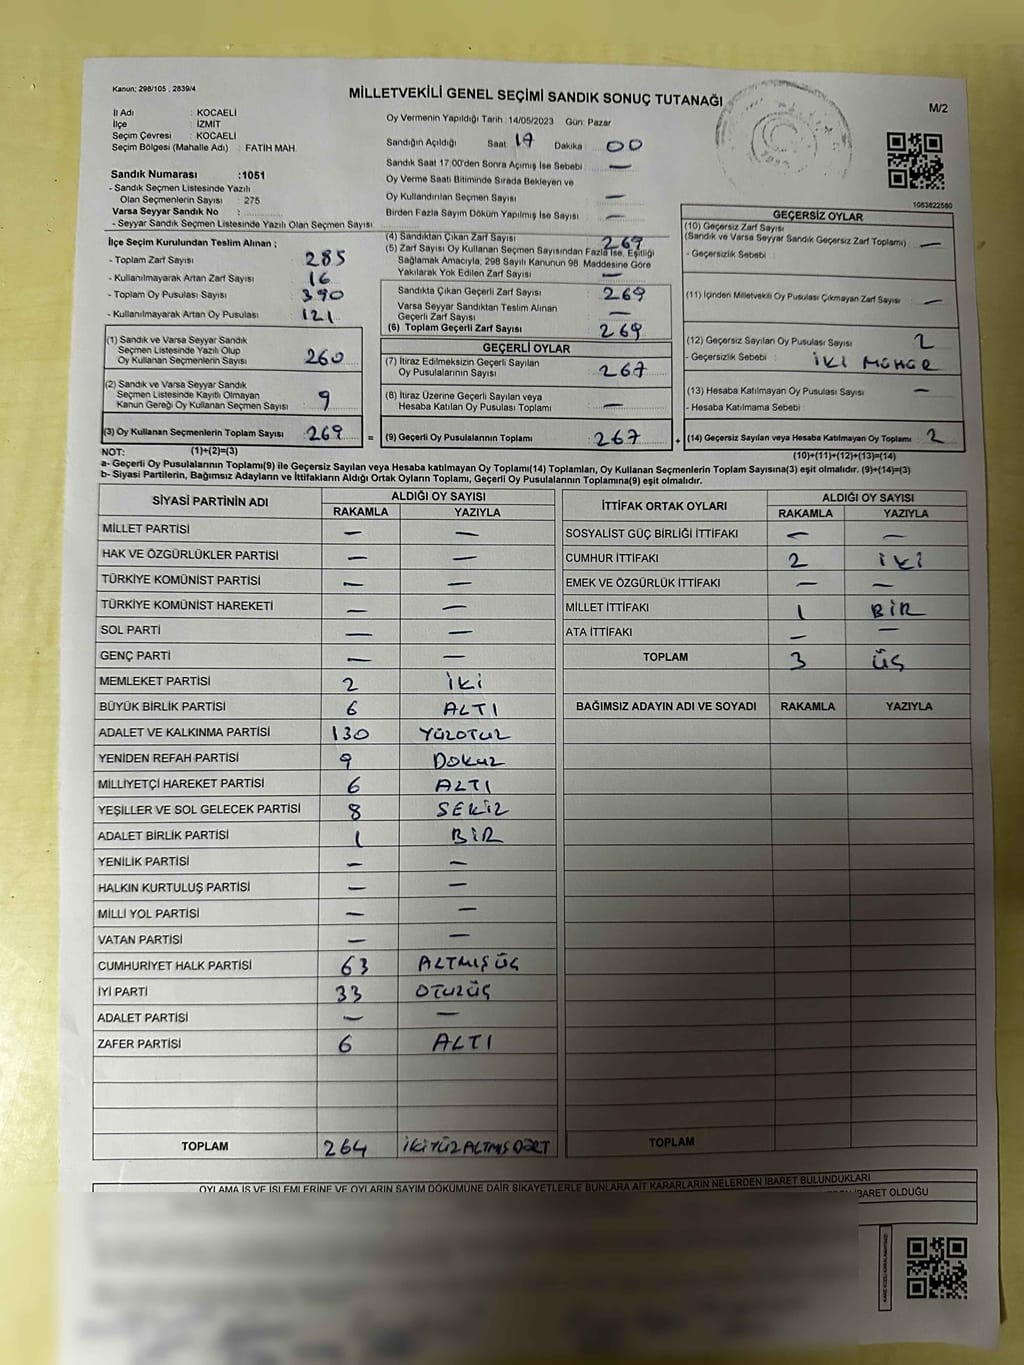 Kanun; 298/105 , 2839/4
MİLLETVEKİLİ GENEL SEÇİMİ SANDIK SONUÇ TUTANAĞI
M/2
İl Adı : KOCAELİ
İlçe : İZMİT
Seçim Çevresi : KOCAELİ
Seçim Bölgesi (Mahalle Adı) : FATİH MAH.
Sandık Numarası :1051
- Sandık Seçmen Listesinde Yazılı
Olan Seçmenlerin Sayısı : 275
Varsa Seyyar Sandık No :
- Seyyar Sandık Seçmen Listesinde Yazılı Olan Seçmen Sayısı:
Oy Vermenin Yapıldığı Tarih :14/05/2023 Gün: Pazar
Sandığın Açıldığı Saat: 17 Dakika : 00
Sandık Saat 17:00'den Sonra Açımış İse Sebebi : —
Oy Verme Saati Bitiminde Sırada Bekleyen ve
Oy Kullandırılan Seçmen Sayısı : —
Birden Fazla Sayım Döküm Yapılmış İse Sayısı : —
1083822580
İlçe Seçim Kurulundan Teslim Alınan ;
- Toplam Zarf Sayısı : 285
- Kullanılmayarak Artan Zarf Sayısı : 16
- Toplam Oy Pusulası Sayısı : 390
- Kullanılmayarak Artan Oy Pusulası : 121
(1) Sandık ve Varsa Seyyar Sandık
Seçmen Listesinde Yazılı Olup
Oy Kullanan Seçmenlerin Sayısı : 260
(2) Sandık ve Varsa Seyyar Sandık
Seçmen Listesinde Kayıtlı Olmayan
Kanun Gereği Oy Kullanan Seçmen Sayısı : 9
(3) Oy Kullanan Seçmenlerin Toplam Sayısı : 269
(4) Sandıktan Çıkan Zarf Sayısı : 269
(5) Zarf Sayısı Oy Kullanan Seçmen Sayısından Fazla İse, Eşitliği
Sağlamak Amacıyla, 298 Sayılı Kanunun 98. Maddesine Göre
Yakılarak Yok Edilen Zarf Sayısı : —
Sandıkta Çıkan Geçerli Zarf Sayısı : 269
Varsa Seyyar Sandıktan Teslim Alınan
Geçerli Zarf Sayısı : —
(6) Toplam Geçerli Zarf Sayısı : 269
GEÇERLİ OYLAR
(7) İtiraz Edilmeksizin Geçerli Sayılan
Oy Pusulalarının Sayısı : 267
(8) İtiraz Üzerine Geçerli Sayılan veya
Hesaba Katılan Oy Pusulası Toplamı : —
= (9) Geçerli Oy Pusulalarının Toplamı : 267
GEÇERSİZ OYLAR
(10) Geçersiz Zarf Sayısı
(Sandık ve Varsa Seyyar Sandık Geçersiz Zarf Toplamı) : —
- Geçersizlik Sebebi :
(11) İçinden Milletvekili Oy Pusulası Çıkmayan Zarf Sayısı : —
(12) Geçersiz Sayılan Oy Pusulası Sayısı : 2
- Geçersizlik Sebebi : İKİ MÜHÜR
(13) Hesaba Katılmayan Oy Pusulası Sayısı : —
- Hesaba Katılmama Sebebi :
+ (14) Geçersiz Sayılan veya Hesaba Katılmayan Oy Toplamı : 2
NOT: (1)+(2)=(3) (10)+(11)+(12)+(13)=(14)
a- Geçerli Oy Pusulalarının Toplamı(9) ile Geçersiz Sayılan veya Hesaba katılmayan Oy Toplamı(14) Toplamları, Oy Kullanan Seçmenlerin Toplam Sayısına(3) eşit olmalıdır. (9)+(14)=(3)
b- Siyasi Partilerin, Bağımsız Adayların ve İttifakların Aldığı Ortak Oyların Toplamı, Geçerli Oy Pusulalarının Toplamına(9) eşit olmalıdır.
SİYASİ PARTİNİN ADI ALDIĞI OY SAYISI
RAKAMLA YAZIYLA
MİLLET PARTİSİ — —
HAK VE ÖZGÜRLÜKLER PARTİSİ — —
TÜRKİYE KOMÜNİST PARTİSİ — —
TÜRKİYE KOMÜNİST HAREKETİ — —
SOL PARTİ — —
GENÇ PARTİ — —
MEMLEKET PARTİSİ 2 İKİ
BÜYÜK BİRLİK PARTİSİ 6 ALTI
ADALET VE KALKINMA PARTİSİ 130 YÜZOTUZ
YENİDEN REFAH PARTİSİ 9 DOKUZ
MİLLİYETÇİ HAREKET PARTİSİ 6 ALTI
YEŞİLLER VE SOL GELECEK PARTİSİ 8 SEKİZ
ADALET BİRLİK PARTİSİ 1 BİR
YENİLİK PARTİSİ — —
HALKIN KURTULUŞ PARTİSİ — —
MİLLİ YOL PARTİSİ — —
VATAN PARTİSİ — —
CUMHURİYET HALK PARTİSİ 63 ALTMIŞ ÜÇ
İYİ PARTİ 33 OTUZÜÇ
ADALET PARTİSİ — —
ZAFER PARTİSİ 6 ALTI
TOPLAM 264 İKİYÜZ ALTMIŞ DÖRT
İTTİFAK ORTAK OYLARI ALDIĞI OY SAYISI
RAKAMLA YAZIYLA
SOSYALİST GÜÇ BİRLİĞİ İTTİFAKI — —
CUMHUR İTTİFAKI 2 İKİ
EMEK VE ÖZGÜRLÜK İTTİFAKI — —
MİLLET İTTİFAKI 1 BİR
ATA İTTİFAKI — —
TOPLAM 3 ÜÇ
BAĞIMSIZ ADAYIN ADI VE SOYADI RAKAMLA YAZIYLA
TOPLAM
OYLAMA İŞ VE İŞLEMLERİNE VE OYLARIN SAYIM DÖKÜMÜNE DAİR ŞİKAYETLERLE BUNLARA AİT KARARLARIN NELERDEN İBARET BULUNDUKLARI
İBARET OLDUĞU